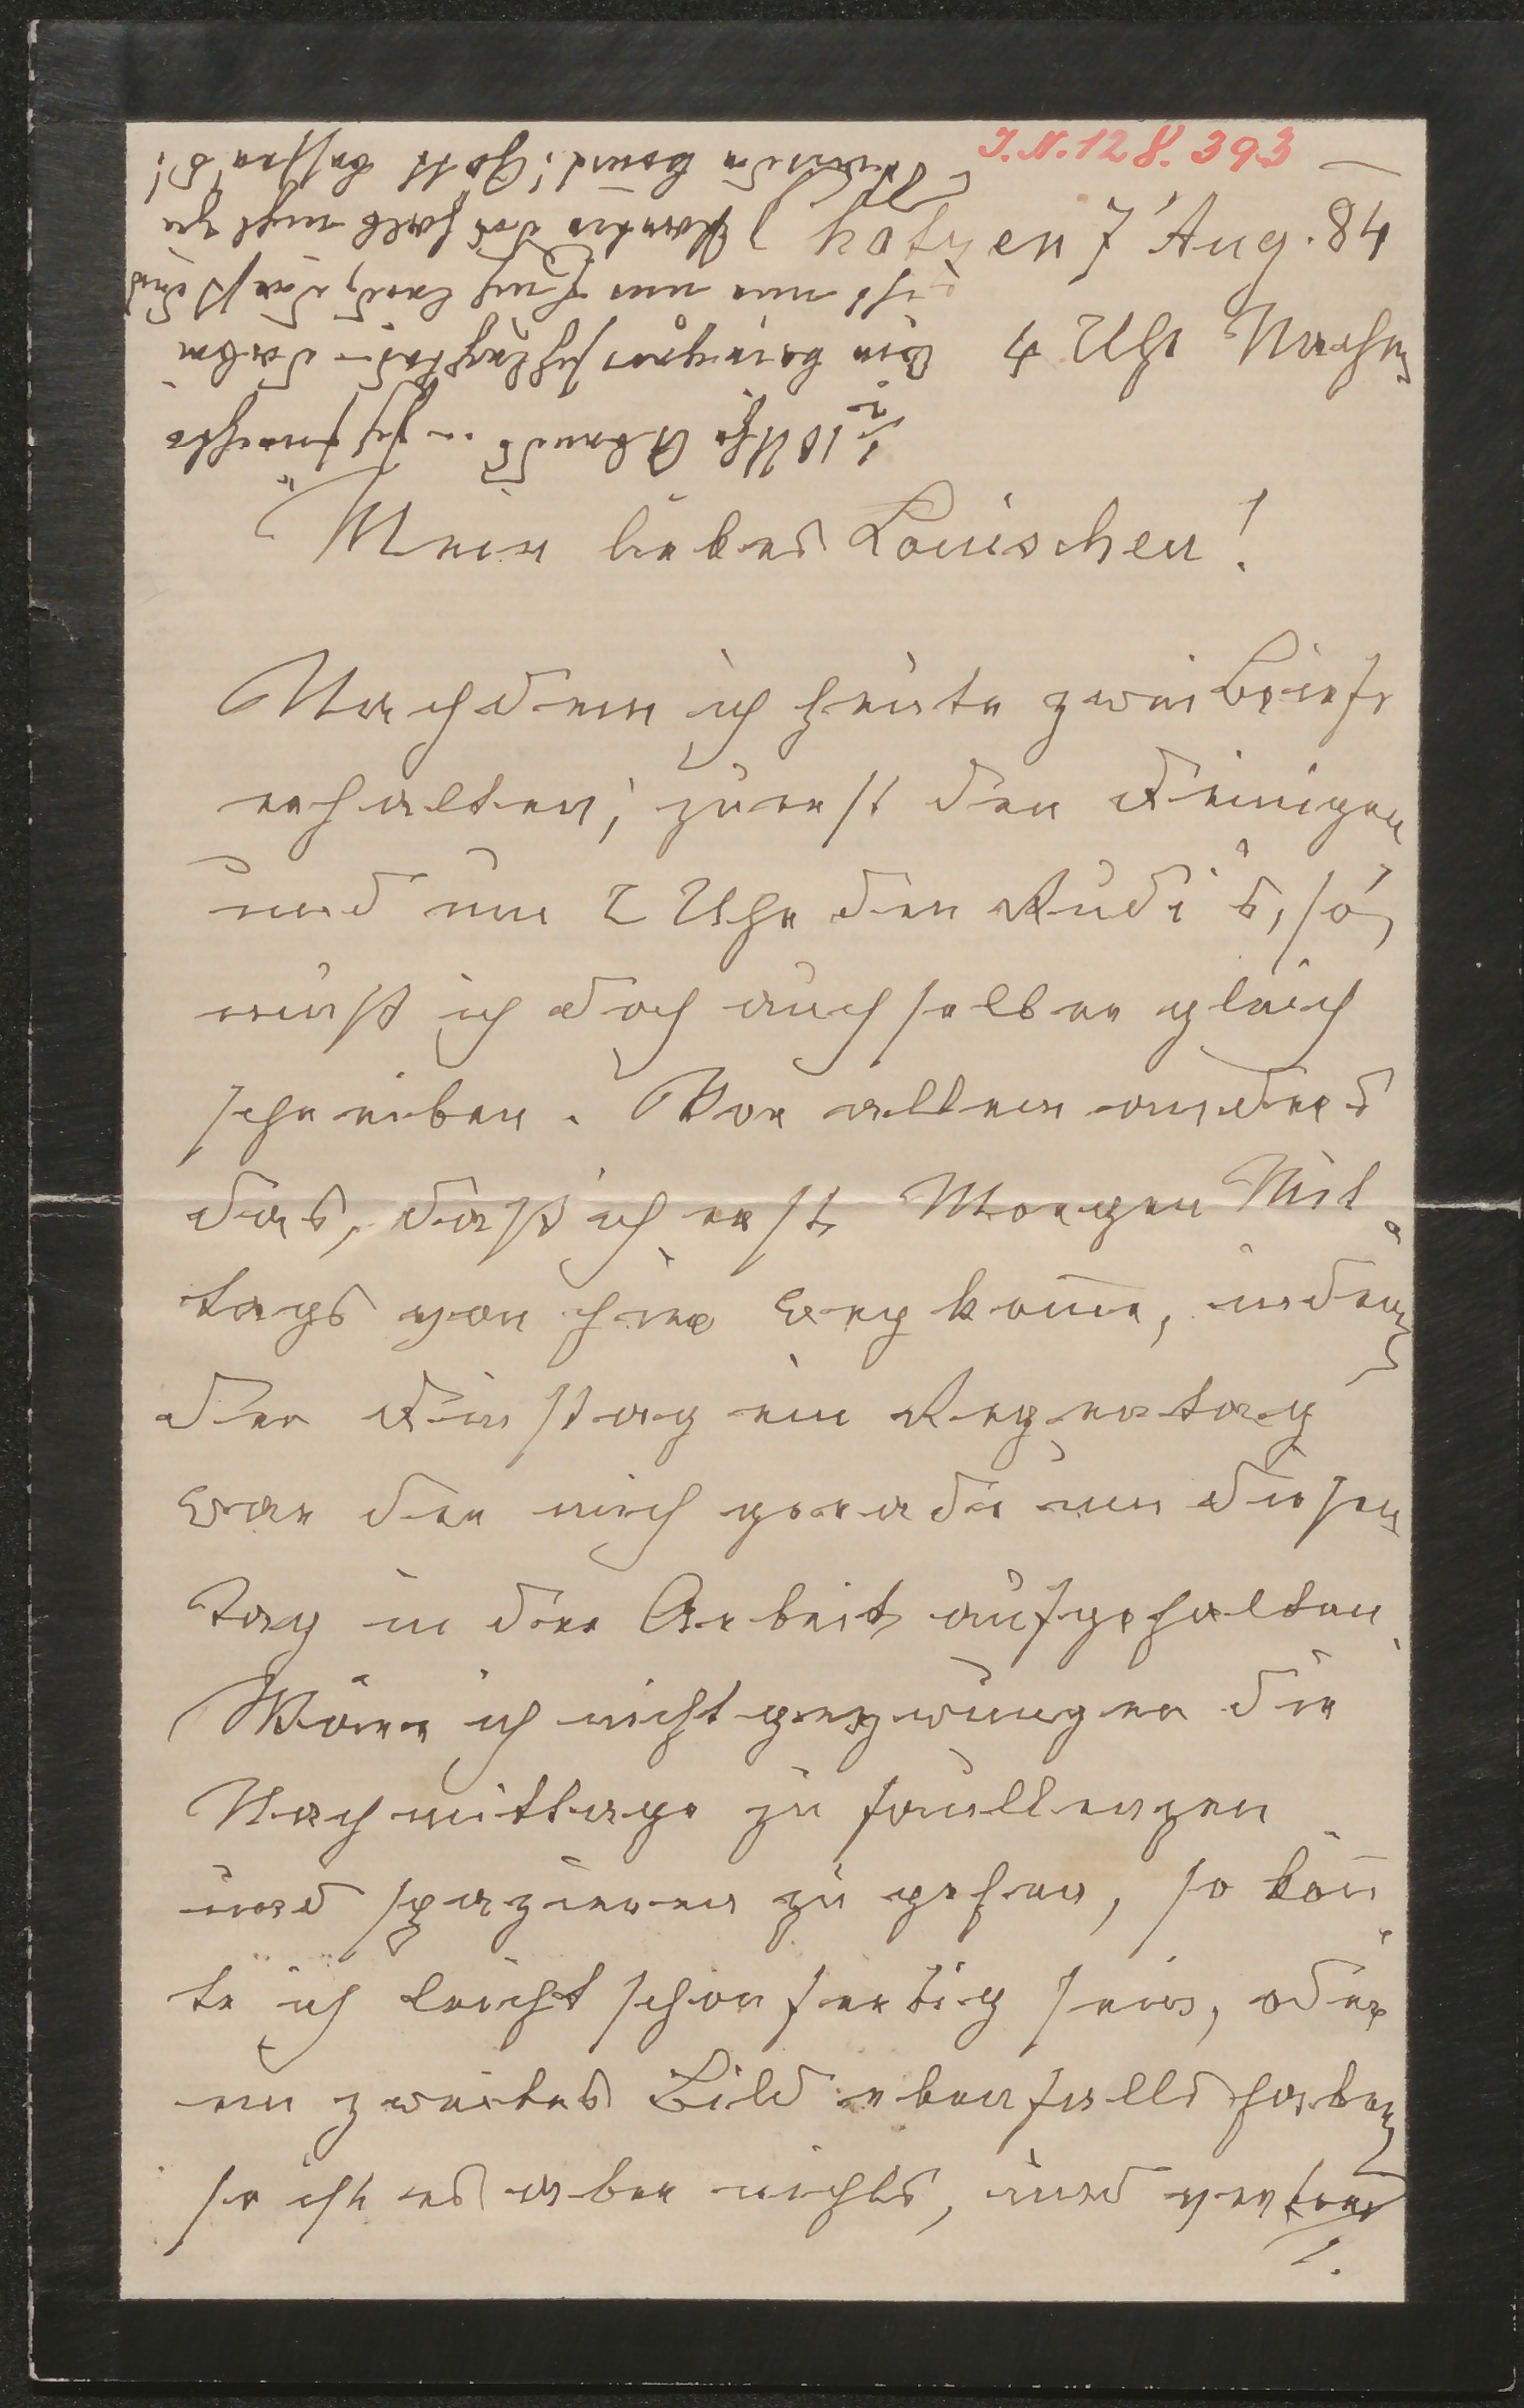 I.N. 128.393
Kotzen 7' Aug. 84
4 Uhr Nachm
Mein liebes Louischen!
Nachdem ich heute zwei Briefe
erhalten, zuerst den Deinigen
und um 2 Uhr den Rudi's, so
muß ich doch auch selber gleich
schreiben. Vor allem anders
das, daß ich erst Morgen Mit
tags von hier weg kom̄e, indem
der Dinstag ein Regentag
war der mich gerade um diesen
Tag in der Arbeit aufgehalten.
Wäre ich nicht gezwungen die
Nachmittage zu faullenzen
und spazieren zu gehen, so kön̄
te ich leicht schon fertig sein, oder
ein zweites Bild ebenfalls haben
so ist es aber nichts, und
/.
½10 Uhr Abends.
nicht zu
Gott besser's!